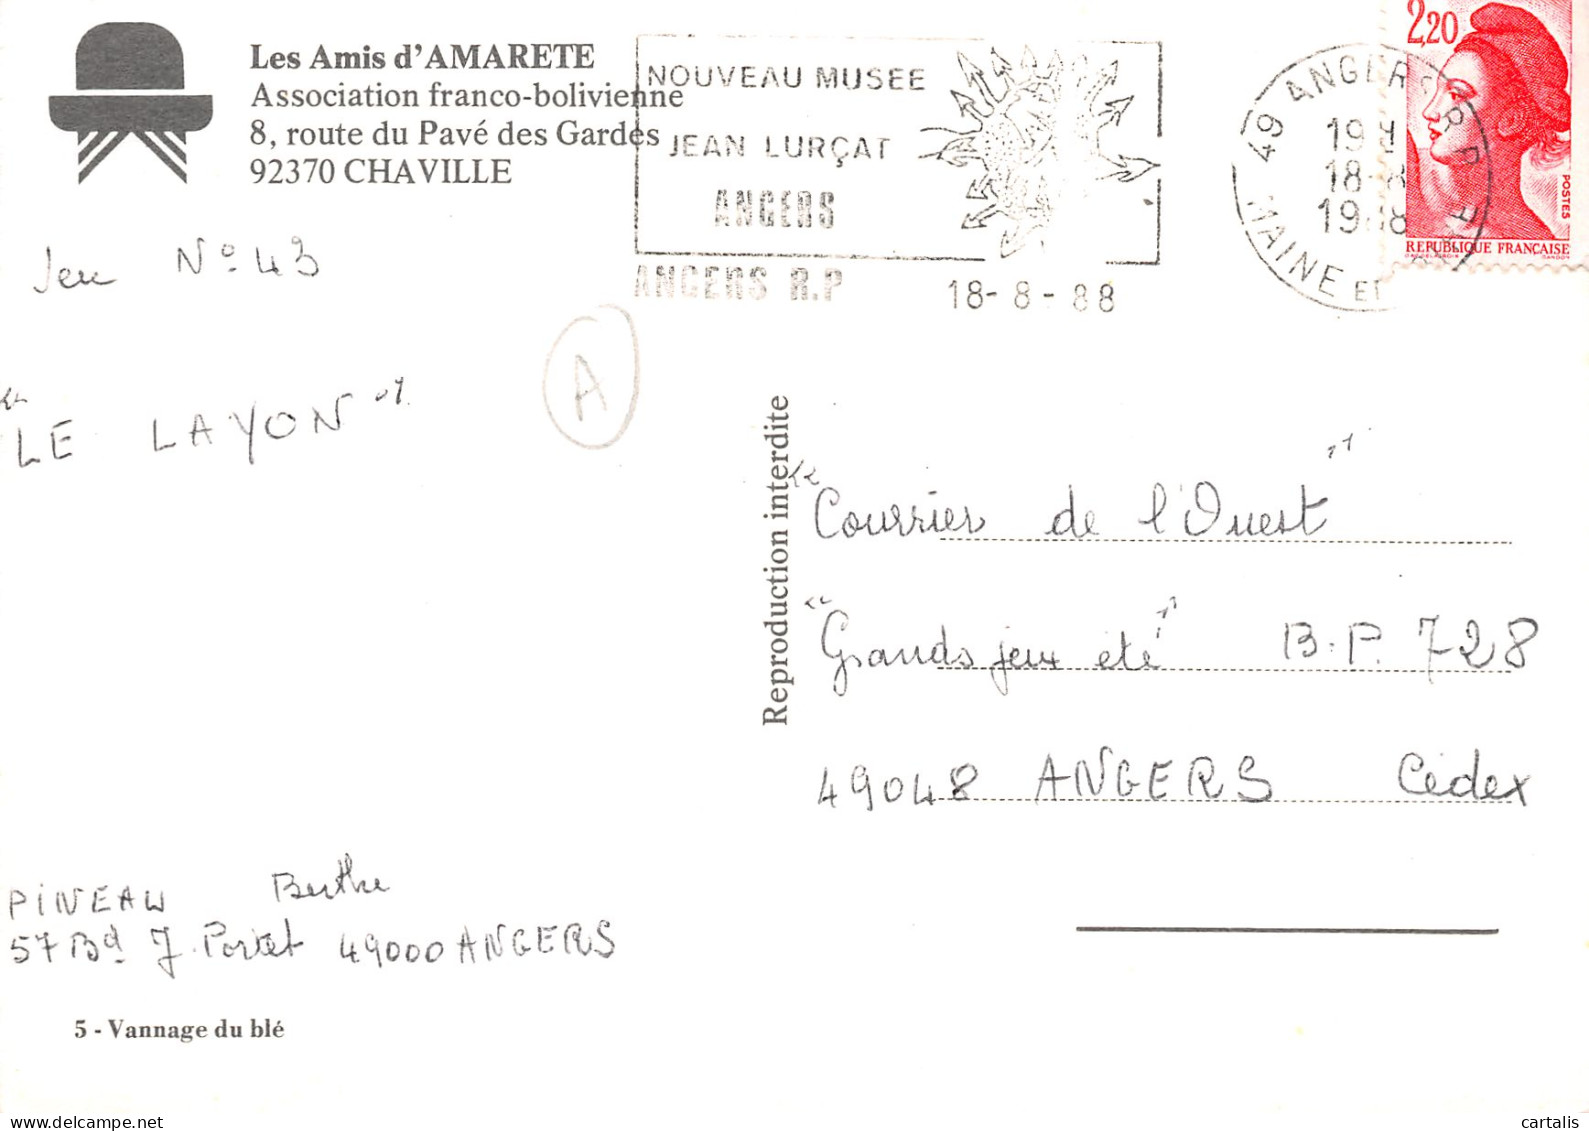 Les Amis d'AMARETE
Association franco-bolivienne
8, route du Pavé des Gardes
92370 CHAVILLE
NOUVEAU MUSEE
JEAN LURÇAT
ANGERS
ANGERS R.P
18-8-88
49 ANGERS R.P.
MAINE ET
19 H
18-8
1988
2,20
POSTES
REPUBLIQUE FRANÇAISE
Jeu No 43
"LE LAYON"
A
Reproduction interdite
"Courrier de l'Ouest"
"Grands jeux été" B.P. 728
49048 ANGERS Cédex
PINEAU Berthe
57 Bd J. Portet 49000 ANGERS
5 - Vannage du blé
cartalis